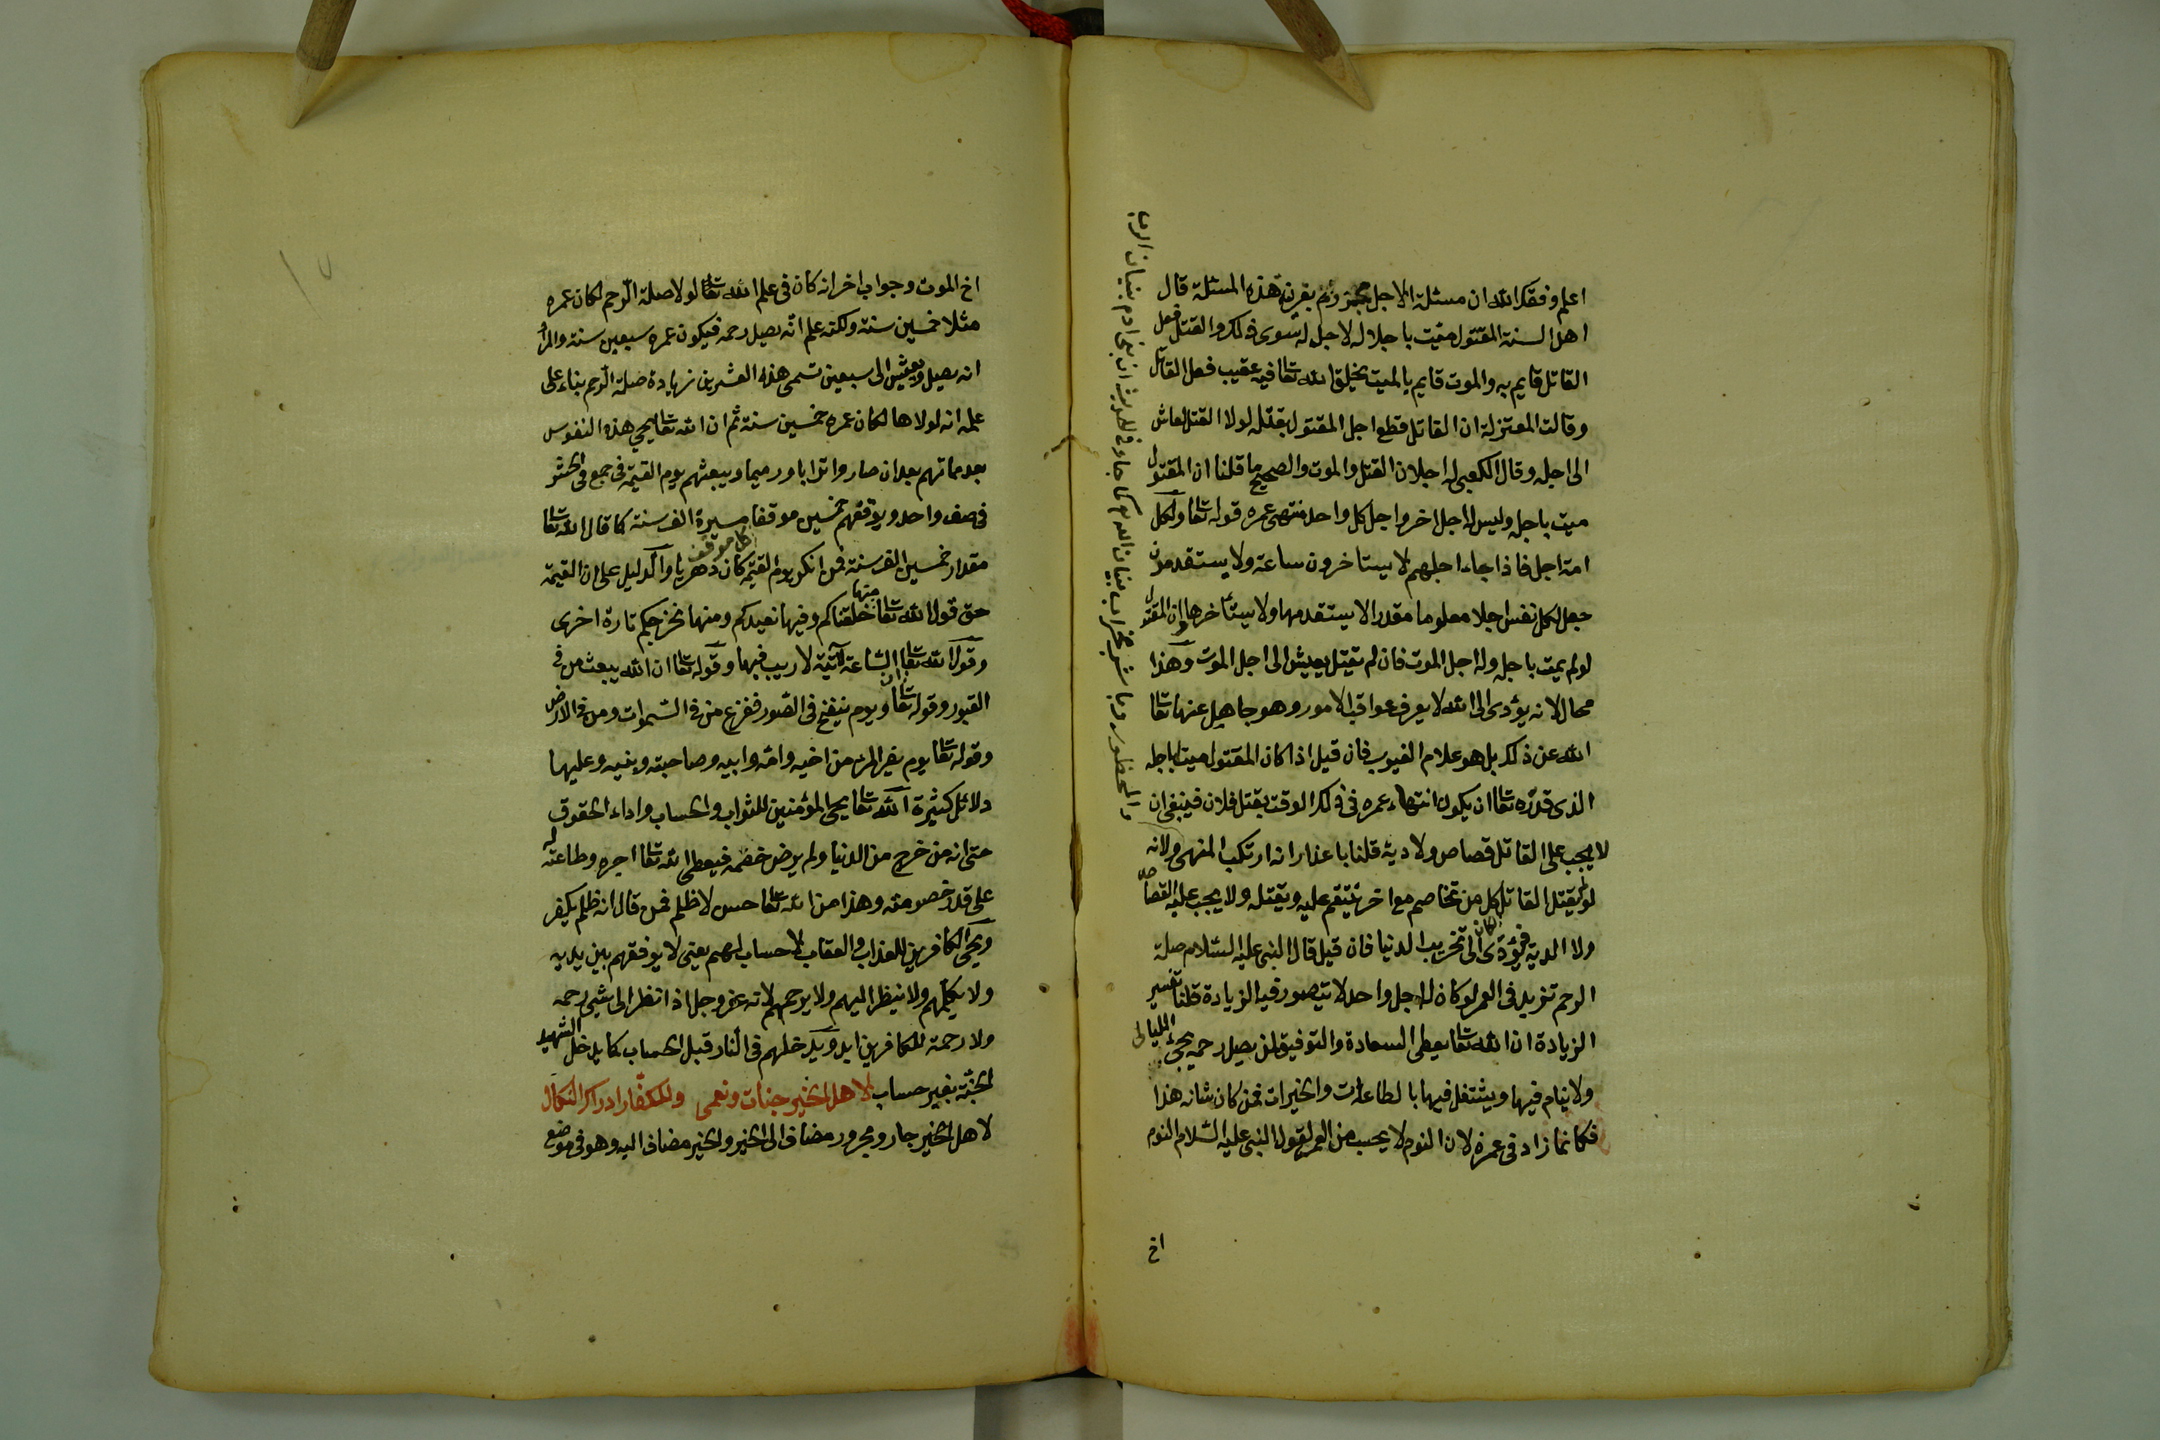 اعلم وفقك الله ان مسئلة الاجل بقرن هذه المسئلة قال
اهل السنة المقتول ميت باجله لا اجل له سوى ذلك والقتل فعل
القاتل قايم به والموت قايم بالميت بخلق الله تعا فيه عقيب فعل القاتل
وقالت المعتزلة ان القاتل قطع اجل المقتول بقتله لولا القتل لعاش
الى اجله وقال الكعبى له اجلان القتل والموت والصحيح ما قلنا ان المقتول
ميت باجله وليس له اجل اخر واجل كل واحد منتهى عمره قوله تعا ولكل
امة اجل فاذا جاء اجلهم لا يستاخرون ساعة ولا يستقدمون
جعل لكل نفس اجلا معلوما مقدرا لا يستقدمها ولا يستأخرها وان المقتول
لو لم يمت باجله وله اجل الموت فان لم يقتل يعيش الى اجل الموت وهذا
محال لانه يؤدى الى الله لا يعرف عواقب الامور وهو جاهل عنها تعا
الله عن ذلك بل هو علام الغيوب فان قيل اذا كان المقتول ميتا باجله
الذى قدره تعا ان يكون انتهاء عمره فى ذلك الوقت بقتل فلان فينبغى ان
لا يجب على القاتل قصاص ولا دية قلنا باعذار انه ارتكب المنهى ولانه
لو لم يقتل القاتل لكان كل من تخاصم مع اخر ينتقم عليه ويقتله ولا يجب عليه القصاص
ولا الدية فيؤدى الى تخريب الدنيا فان قيل قال النبى عليه السلام صلة
الرحم تزيد فى العمر لو كان له اجل واحد لا يتصور فيه الزيادة قلنا تفسير
الزيادة ان الله تعا يعطى السعادة والتوفيق لمن يصل رحمه يحيى الليالى
ولا ينام فيها ويشتغل فيها بالطاعات والخيرات فمن كان شانه هذا
فكانما زاد فى عمره لان النوم لا يحسب من العمر لقول النبى عليه السلام النوم
اخ
اخ الموت وجواب اخر انه كان فى علم الله تعا لولا صلة الرحم لكان عمره
مثلا خمسين سنة ولكنه علم انه يصل رحمه فيكون عمره سبعين سنة والمراد
انه يصل ويعيش الى سبعين تسمى هذه العشرين زيادة صلة الرحم بناء على
علمه انه لولاها لكان عمره خمسين سنة ثم ان الله تعا يحيى هذه النفوس
بعد مماتهم بعد ان صاروا ترابا ورميما ويبعثهم يوم القيمة فى جمع فى الحشر
فى صف واحد ويوقفهم خمسين موقفا كل موقف مسيرة الف سنة كما قال الله تعا
مقدار خمسين الف سنة فمن انكر يوم القيمة كان دهريا والدليل على ان القيمة
حق قول الله تعا منها خلقناكم وفيها نعيدكم ومنها نخرجكم تارة اخرى
وقول الله تعا ان الساعة آتية لا ريب فيها وقوله تعا ان الله يبعث من فى
القبور وقوله تعا ويوم ينفخ فى الصور ففزع من فى السموات ومن فى الارض
وقوله تعا يوم يفر المرء من اخيه وامه وابيه وصاحبته وبنيه وعليها
دلائل كثيرة الله تعا يحيى المؤمنين للثواب والحساب واداء الحقوق
حتى انه من خرج من الدنيا ولم يرض خصمه فيعطى الله تعا اجره وطاعته له
على قدر خصومته وهذا من الله تعا حسن لا ظلم فمن قال انه ظلم يكفر
ويحيى الكافرين للعذاب والعقاب لا حساب لهم يعنى لا يوقفهم بين يديه
ولا يكلمهم ولا ينظر اليهم ولا يرحمهم لانه عز وجل اذا نظر الى شيئ رحمه
ولا رحمة للكافرين ابدا ويدخلهم فى النار قبل الحساب كما يدخل الشهيد
الجنة بغير حساب لاهل الخير جنات ونعمى وللكفار ادراك النكال
لاهل الخير جار ومجرور مضاف الى الخير والخير مضاف اليه وهو فى موضع